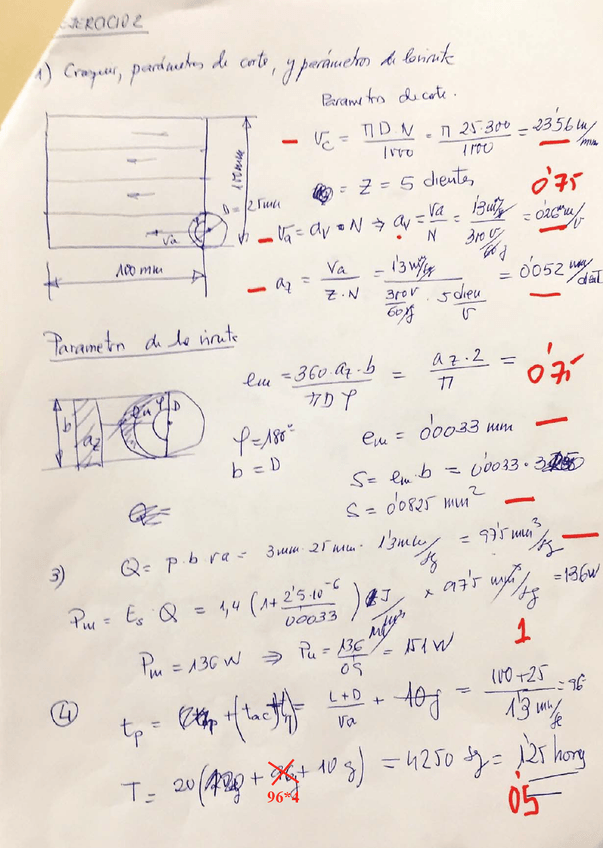 EJERCICIO 2
1) Croquis, parámetros de corte, y parámetros de la viruta
Parametros de corte.
Vc = ΠD·N/1000 = Π 25·300/1000 = 23'56 m/min
= Z = 5 dientes 0'75
Va = av · N ⇒ av = Va/N = 1'3 mm/sg / 300 v/60 sg = 0'26 mm/v
az = Va/Z·N = 1'3 mm/sg / 300 v/60 sg · 5 dien/v = 0'052 mm/dient
100 mm
D = 25 mm
Va
100 mm
Parametros de la viruta
em = 360·az·b/πDφ = az·2/Π = 0'75
b az em φ D
φ = 180°
b = D
em = 0'0033 mm
S = em·b = 0'0033 ·
S = 0'0825 mm²
3) Q = p·b·va = 3mm·25mm·1'3mm/sg = 97'5 mm³/sg
Pm = Es · Q = 1,4 (1 + 2'5·10⁻⁶/0'0033) J/mm³ × 97'5 mm³/sg = 136 W
1
Pm = 136 W ⇒ Pu = 136/0'9 = 151 W
4
tp = + (tac + = L+D/Va + 10g = 100+25/1'3 mm/sg = 96
T = 20( + 96 + 10 g) = 4250 sg = 1'25 horas
96*4
0'5